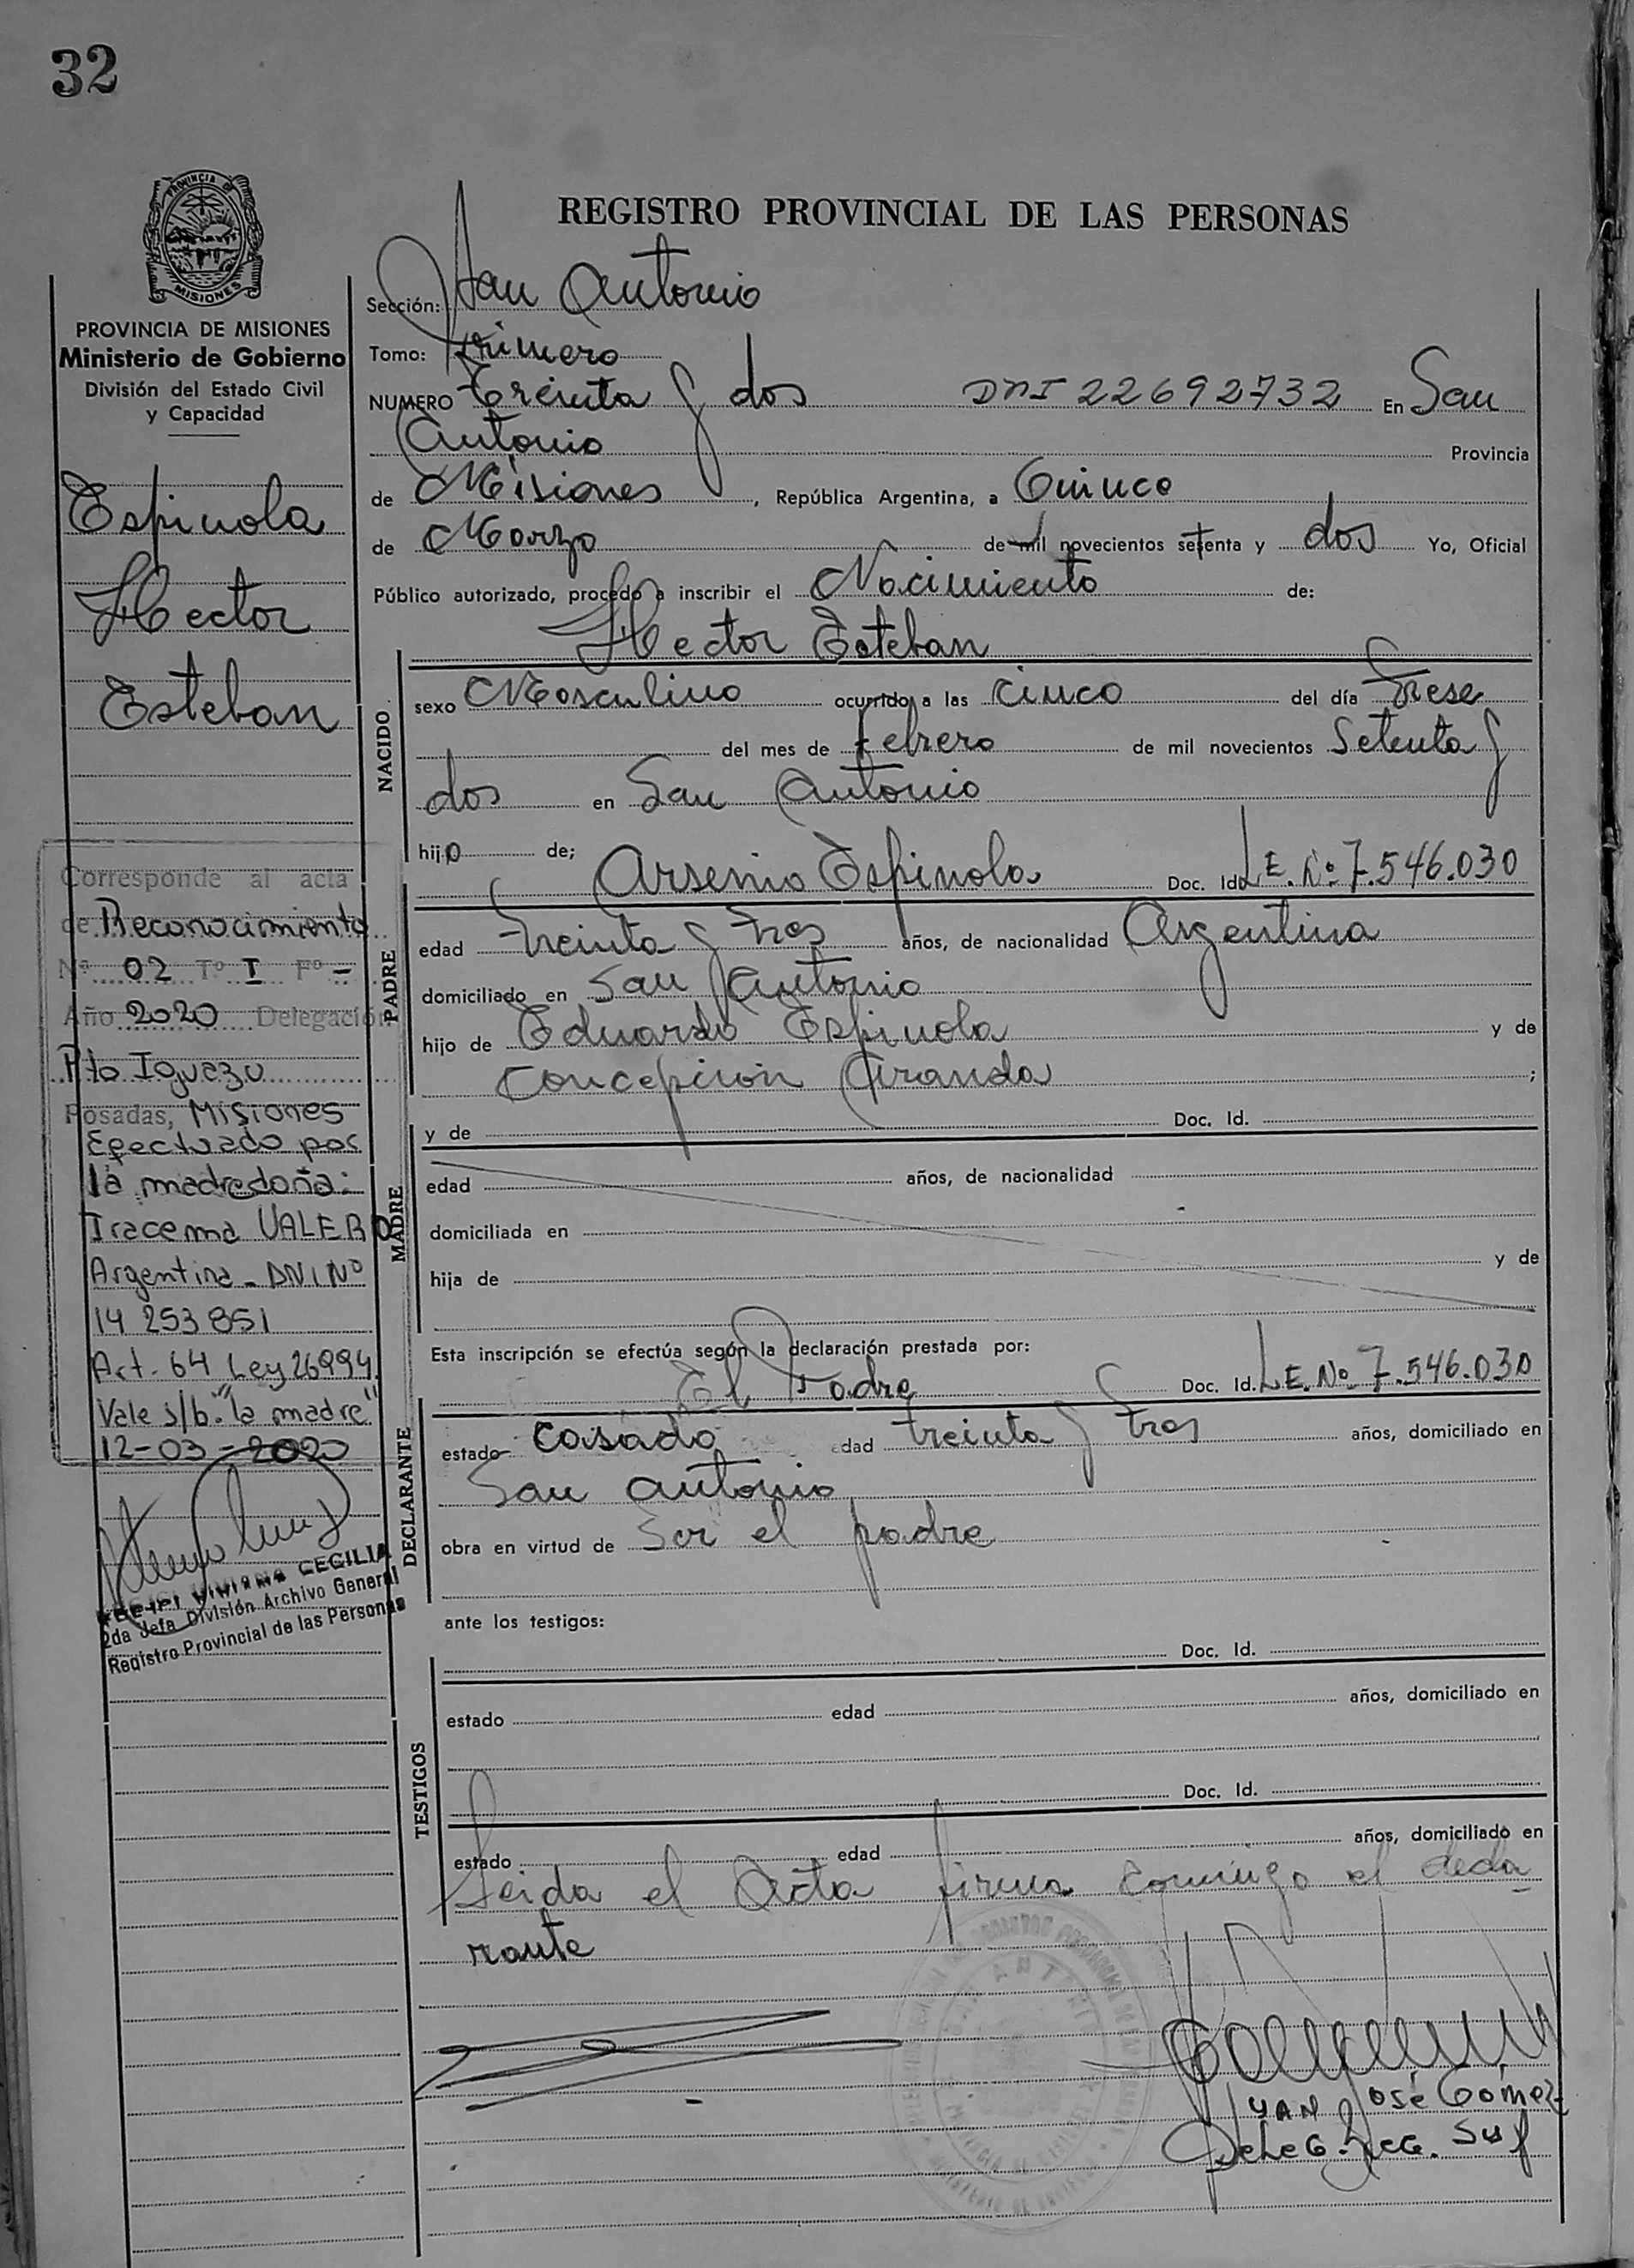 32
PROVINCIA DE
MISIONES
PROVINCIA DE MISIONES
Ministerio de Gobierno
División del Estado Civil
y Capacidad
Espinola
Hector
Esteban
Corresponde al acta
de Reconocimiento
Nº 02 Tº I Fº -
Año 2020 Delegación
Pto Iguazu
Posadas, Misiones
Efectuado por
la madre doña:
Iracema VALERO
Argentina - DNI Nº
14 253 851
Art. 64 Ley 26994.
Vale s/b. "la madre"
12-03-2020
VIVIANA CECILIA
2da Jefa División Archivo General
Registro Provincial de las Personas
REGISTRO PROVINCIAL DE LAS PERSONAS
Sección: San Antonio
Tomo: Primero
NUMERO Treinta y dos DNI 22692732 En San
Antonio Provincia
de Misiones, República Argentina, a Quince
de Marzo de mil novecientos setenta y dos Yo, Oficial
Público autorizado, procedo a inscribir el Nacimiento de:
Hector Esteban
NACIDO
sexo Masculino ocurrido a las cinco del día Trese
del mes de febrero de mil novecientos Setenta y
dos en San Antonio
hijo de; Arsenio Espinola Doc. Id. L.E. Nº 7.546.030
PADRE
edad treinta y tres años, de nacionalidad Argentina
domiciliado en San Antonio
hijo de Eduardo Espinola y de
Concepcion Aranda ;
y de Doc. Id.
MADRE
edad años, de nacionalidad
domiciliada en
hija de y de
Esta inscripción se efectúa según la declaración prestada por:
El Padre Doc. Id. L.E. Nº 7.546.030
DECLARANTE
estado casado edad treinta y tres años, domiciliado en
San Antonio
obra en virtud de Ser el padre
ante los testigos:
Doc. Id.
TESTIGOS
estado edad años, domiciliado en
Doc. Id.
estado edad años, domiciliado en
Leida el Acta firma comingo el decla
rante
JUAN José Gómez